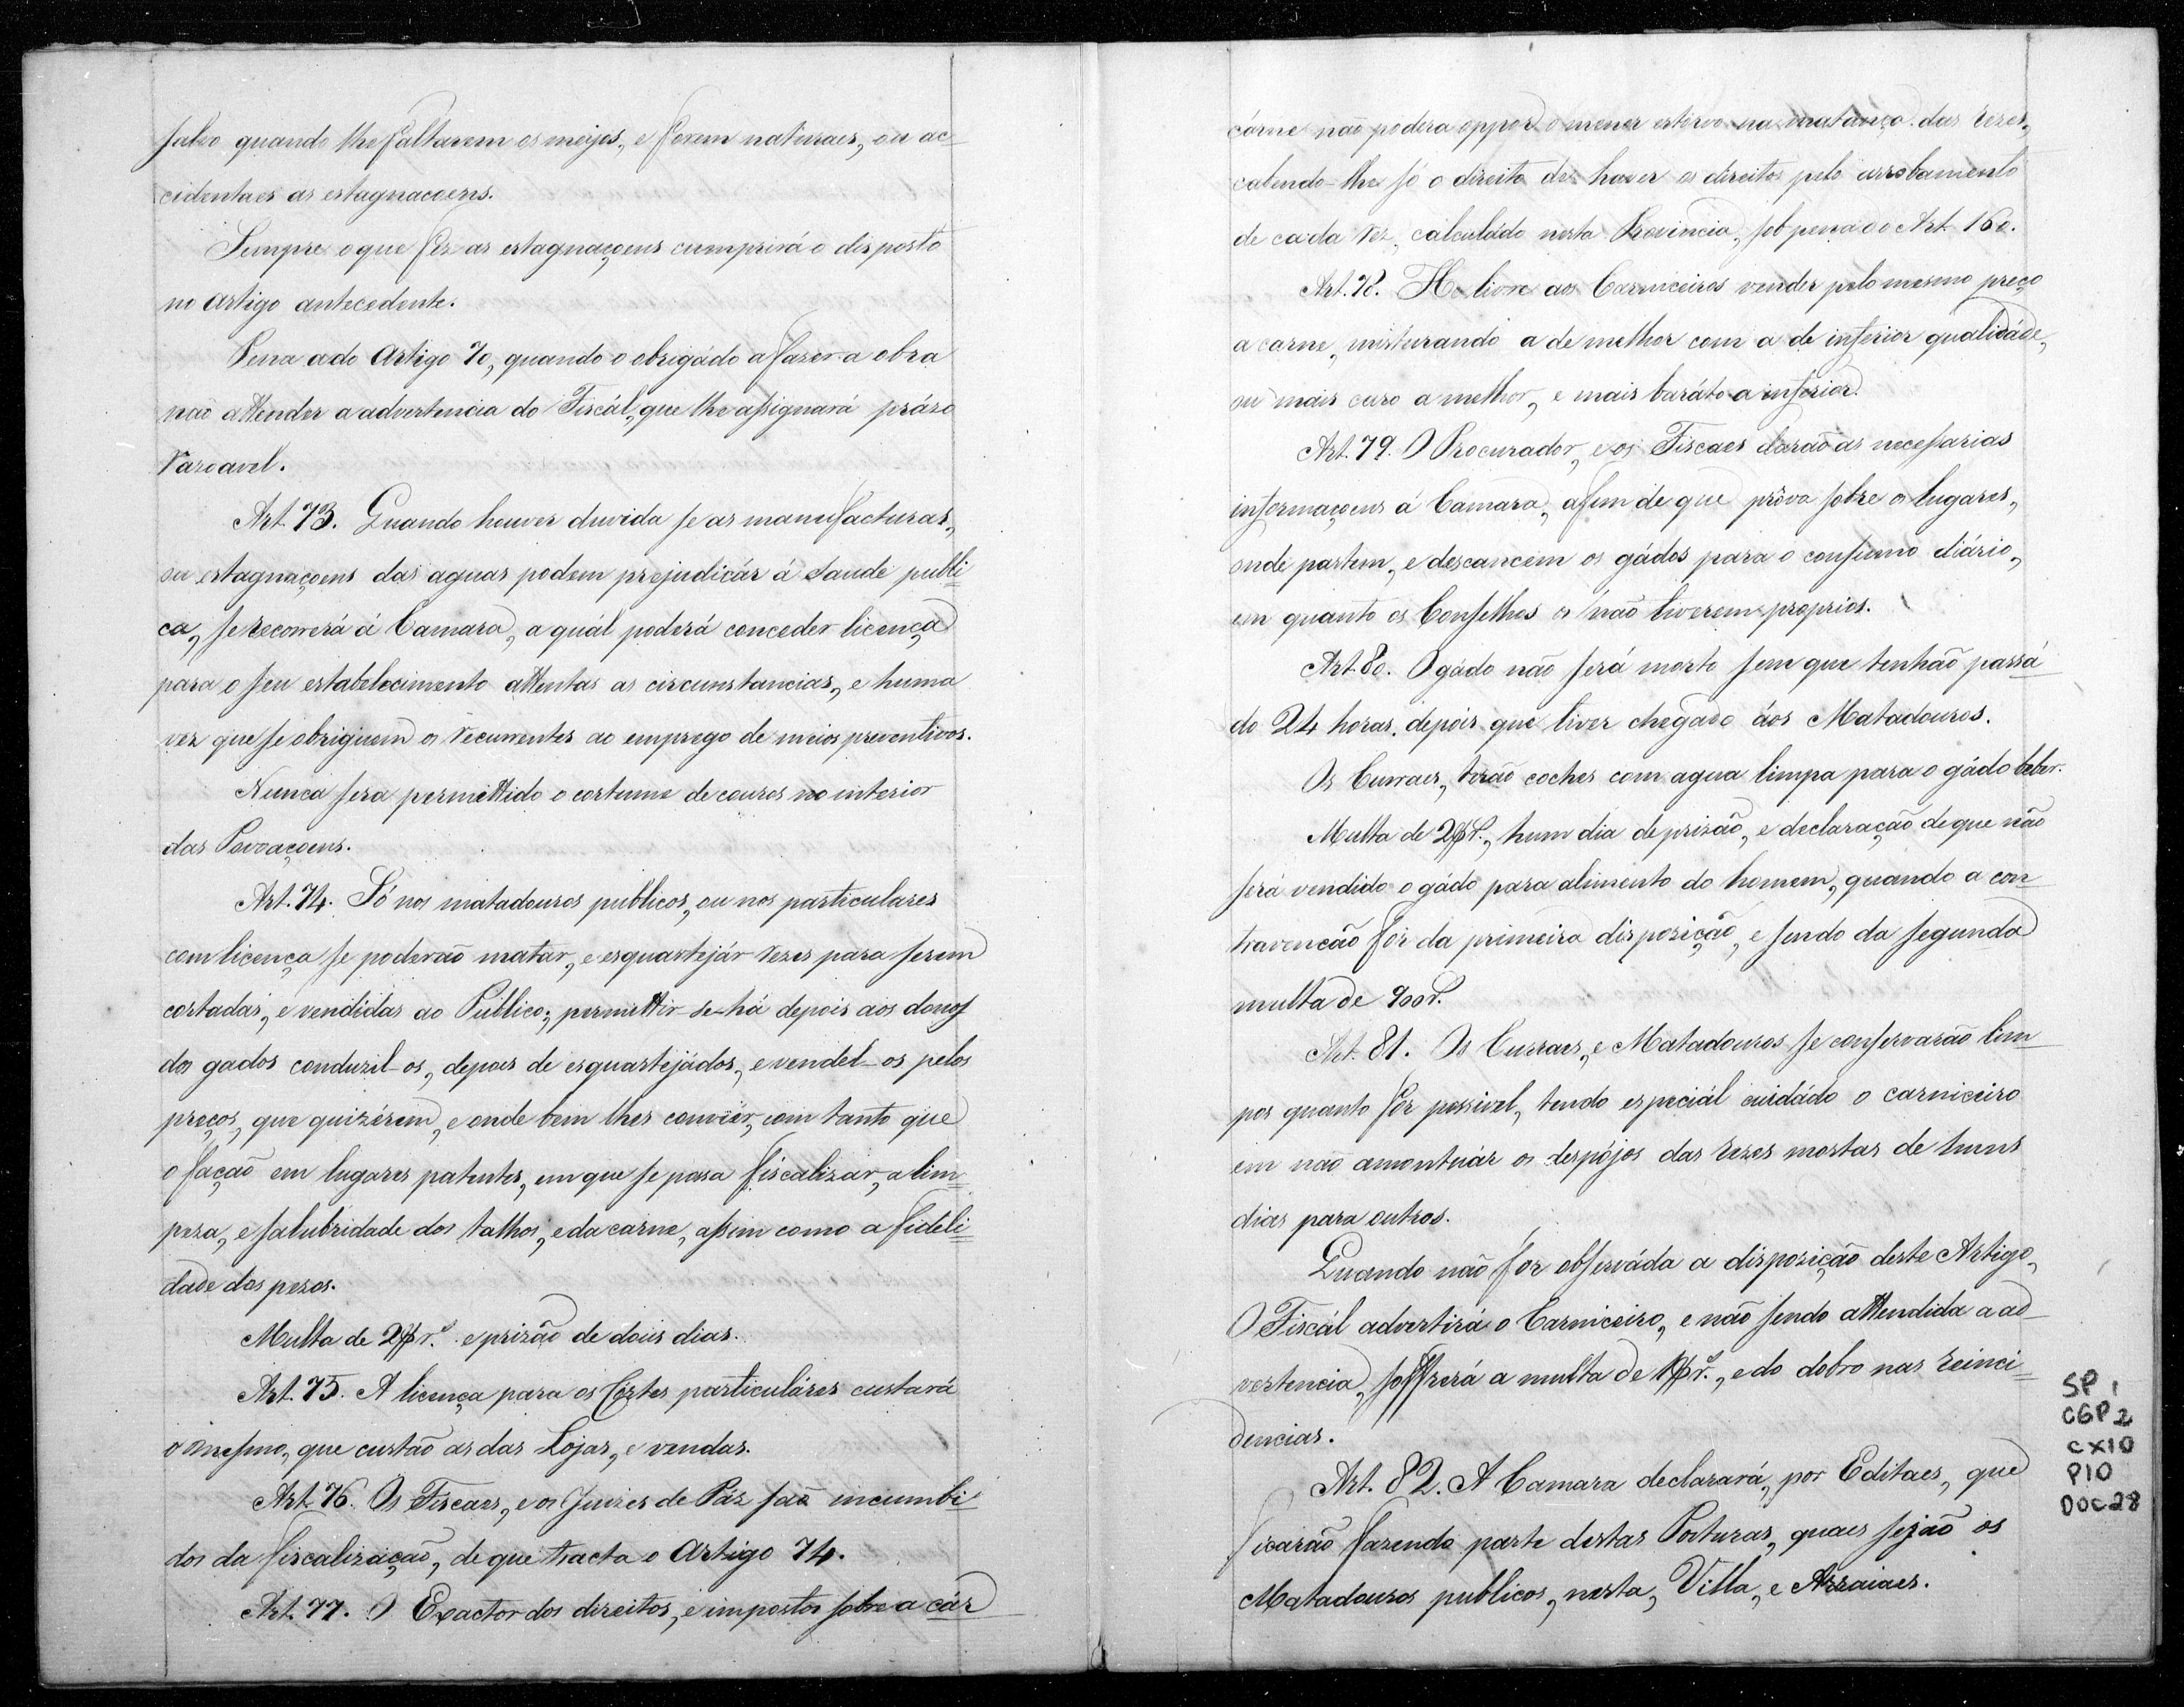 salvo quando lhe faltarem os meyos, e forem naturaes, ou ac-
cidentaes as estagnacoens.
Sempre o que fez as estagnaçoens cumprirá o disposto
no artigo antecedente.
Pena a do Artigo 70, quando o obrigádo a fazer a obra
não attender a advertencia do Fiscál, que lhe assignará prázo
razoavel.
Art. 73. Quando houver duvida se as manufacturas,
ou estagnaçoens das aguas podem prejudicár á Saude publi=
ca, se recorrerá á Camara, a quál poderá conceder licença
para o seu estabelecimento attentas as circunstancias, e huma
vez que se obriguem os recurrentes ao emprego de meios preventivos.
Nunca sera permettido o cortume de couros no interior
das Povoaçoens.
Art. 74. Só nos matadouros publicos, ou nos particulares
com licença se poderão matar, e esquartejár rezes para serem
cortadas, e vendidas ao Público; permettir-se-há depois aos donos
dos gados conduzil-os, depois de esquartejádos, e vendel-os pelos
preços, que quizérem, e onde bem lhes conviér, com tanto que
o fação em lugares patentes, em que se possa fiscalizar, a lim=
peza, e salubridade dos talhos, e da carne, assim como a fideli=
dade dos pezos.
Multa de 2$rs. e prizão de dois dias.
Art. 75. A licença para os Córtes particuláres custará
o mesmo, que custão as das Lojas, e vendas.
Art. 76. Os Fiscaes, e os Juizes de Páz são incumbi-
dos da fiscalização, de que tracta o Artigo 74.
Art. 77. O Exactor dos direitos, e impostos sobre a cár
cárne não podera oppor o menor estorvo na matança das rezes,
cabendo-lhe só o direito de haver os direitos pelo arrobamento
de cada rez, calculádo nesta Provincia, sob pena do Art. 160.
Art. 78. He livre aos Carniceiros vender pelo mesmo preço
a carne, misturando a de melhor com a de inferior qualidáde,
ou mais caro a melhor, e mais baráto a inferior.
Art. 79. O Procurador, e os Fiscaes darão as necessarias
informaçoens á Camara, afim de que prôva sobre os lugares,
onde pastem, e descancem os gádos para o consumo diário,
em quanto os Conselhos os não tiverem proprios.
Art. 80. O gádo não será morto sem que tenhão passá
do 24 horas, depois que tiver chegado áos Matadouros.
Os Curraes, terão coches com agua limpa para o gádo beber.
Multa de 2$rs., hum dia de prizão, e declaração de que não
será vendido o gádo para alimento do homem, quando a con-
travencão fôr da primeira disposição, e sendo da segunda
multa de 900rs.
Art. 81. Os Curraes, e Matadouros se conservarão lim-
pos quanto fôr possivel, tendo especiál cuidádo o carniceiro
em não amontuár os despójos das rezes mortas de huns
dias para outros.
Quando não for observáda a disposição deste Artigo,
O Fiscál advertirá o Carniceiro, e não sendo attendida a ad-
vertencia, soffrerá a multa de 1$rs., e do dobro nas reinci=
dencias.
Art. 82. A Camara declarará, por Editaes, que
ficarão fazendo parte destas Posturas, quaes sejão os
Matadouros publicos, nesta, Villa, e Arraiaes.
SP 1
CGP2
CX10
P10
DOC28